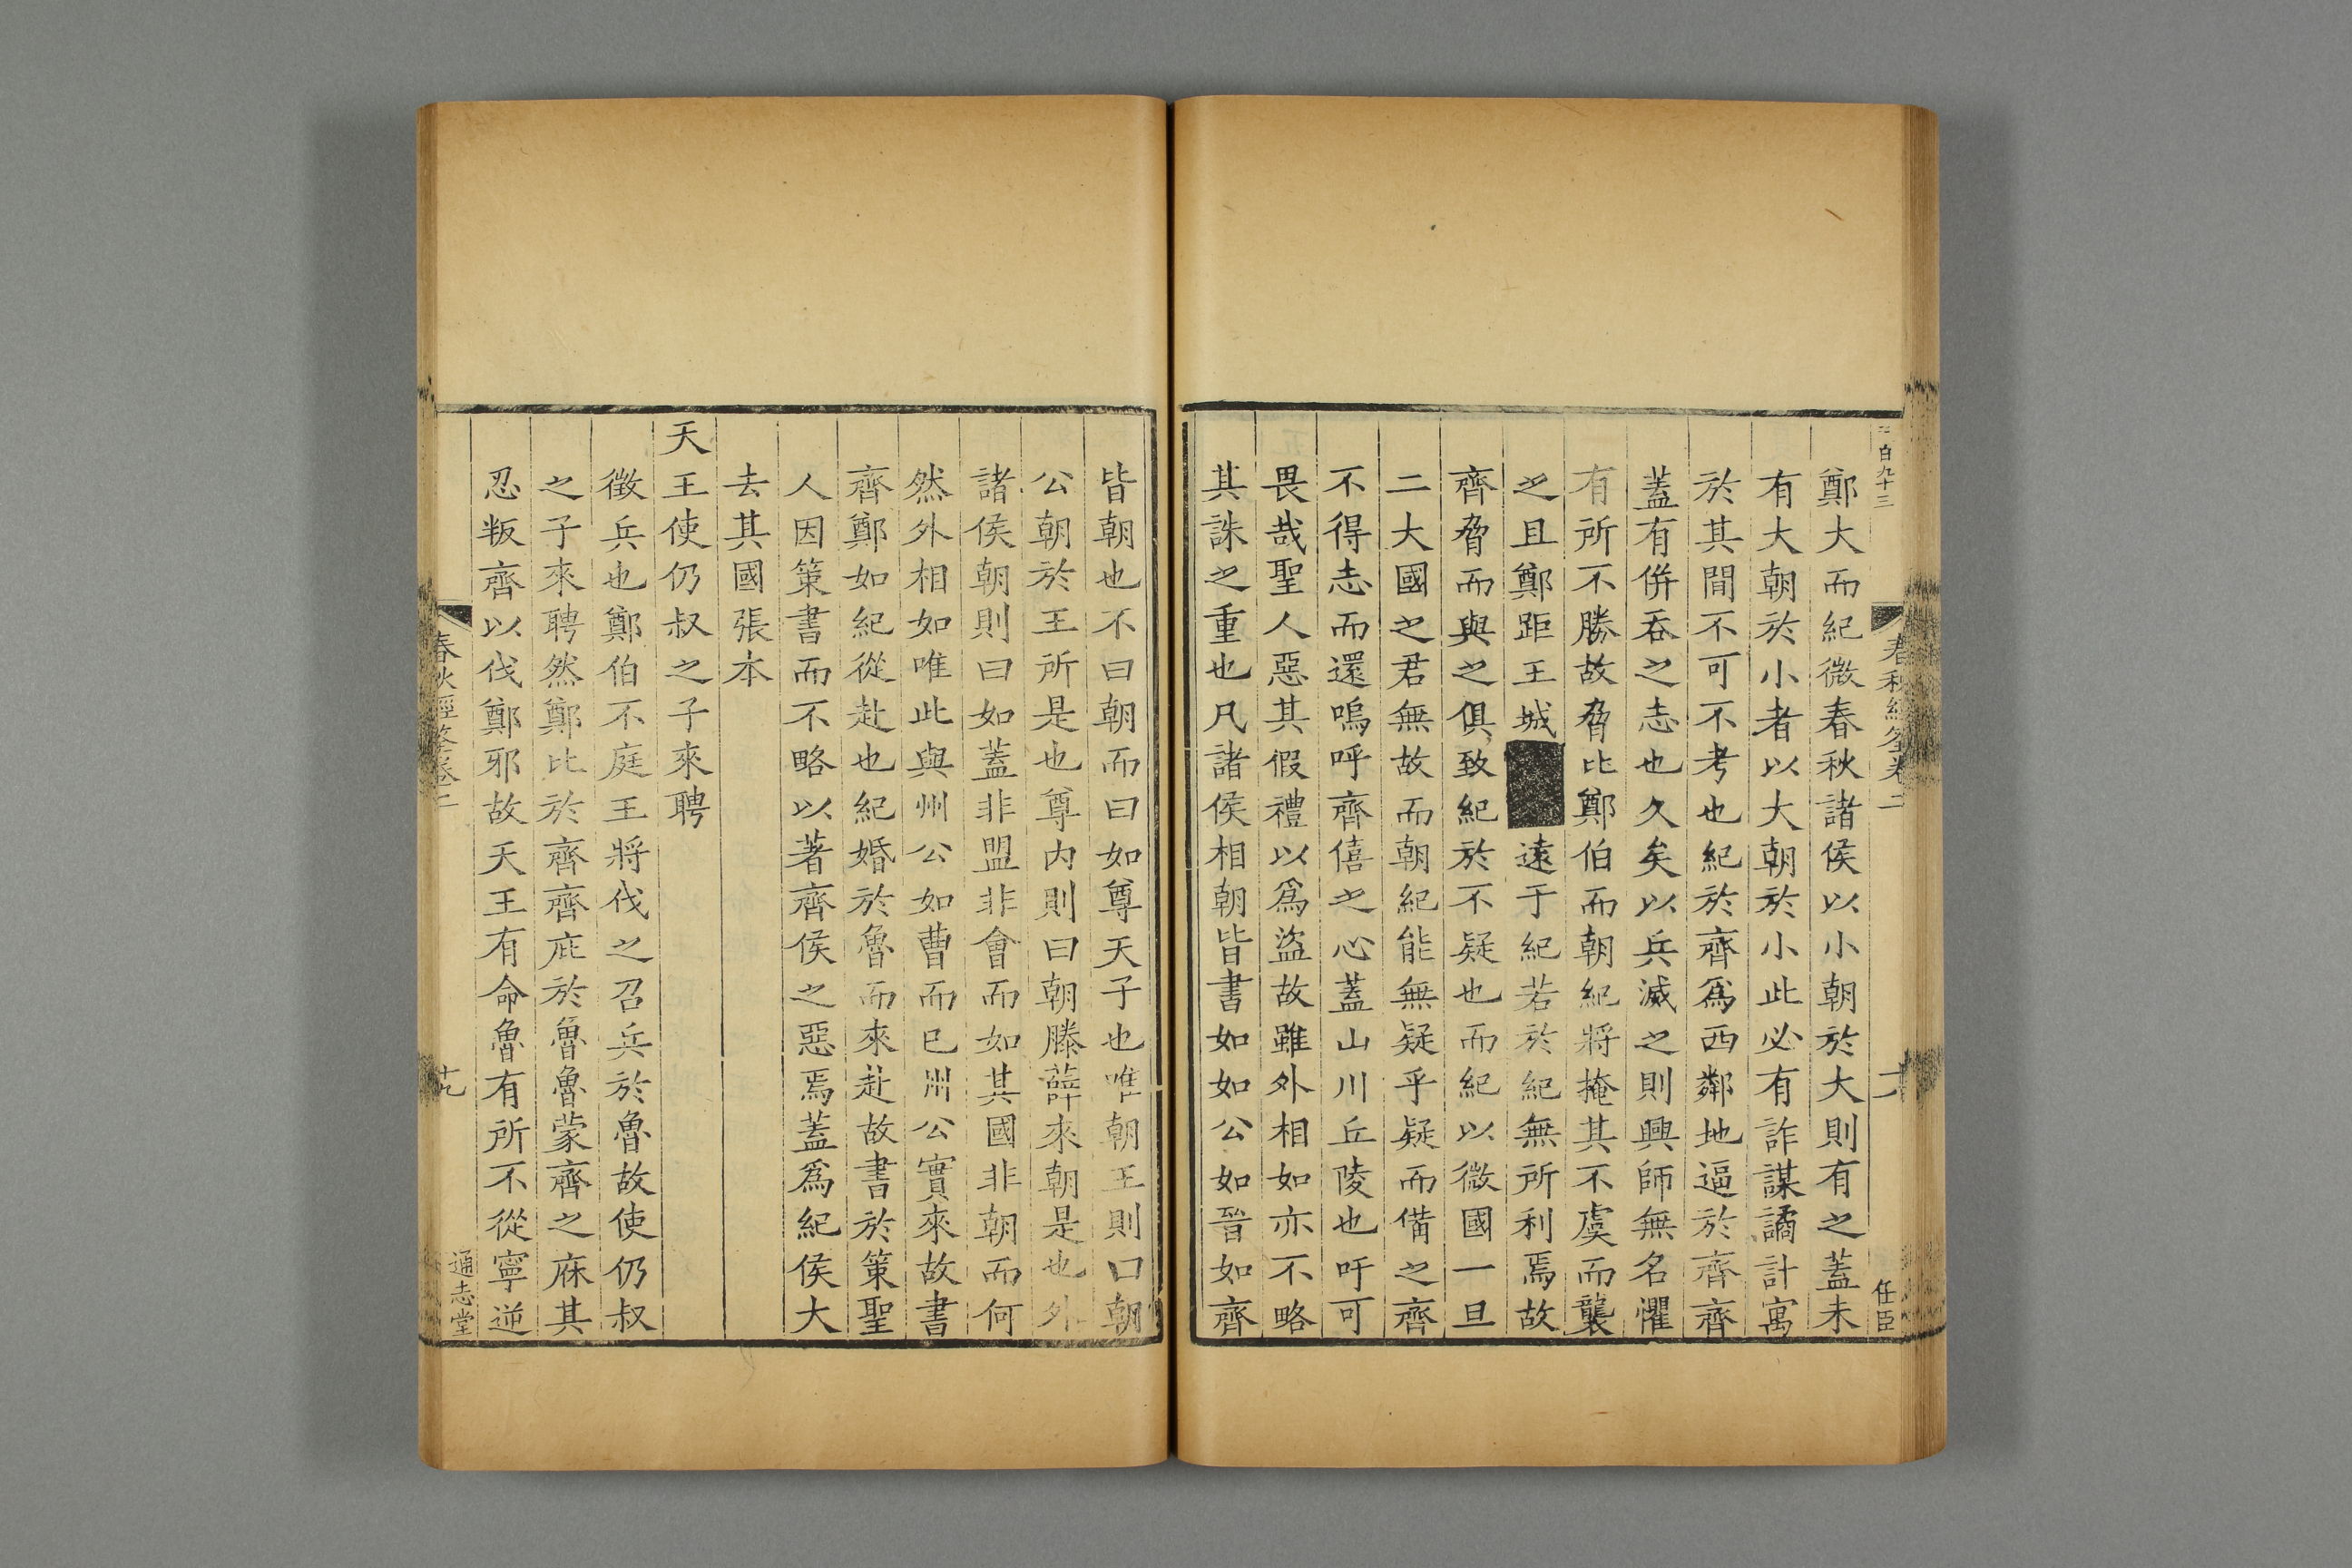 鄭大而紀微春秋諸侯以小朝於大則有之蓋未
有大朝於小者以大朝於小此必有詐謀譎計寓
於其間不可不考也紀於齊爲西鄰地逼於齊齊
蓋有併吞之志也久矣以兵滅之則興師無名懼
有所不勝故脅比鄭伯而朝紀將掩其不虞而襲
之且鄭距王城遠于紀若於紀無所利焉故
齊脅而與之俱致紀於不疑也而紀以微國一旦
二大國之君無故而朝紀能無疑乎疑而備之齊
不得志而還嗚呼齊僖之心蓋山川丘陵也吁可
畏哉聖人惡其假禮以爲盜故雖外相如亦不略
其誅之重也凡諸侯相朝皆書如如公如晉如齊
任臣
皆朝也不曰朝而曰如尊天子也唯朝王則曰朝
公朝於王所是也尊內則曰朝滕薛來朝是也外
諸侯朝則曰如蓋非盟非會而如其國非朝而何
然外相如唯此與州公如曹而已州公實來故書
齊鄭如紀從赴也紀婚於魯而來赴故書於策聖
人因策書而不略以著齊侯之惡焉蓋爲紀侯大
去其國張本
天王使仍叔之子來聘
徵兵也鄭伯不庭王將伐之召兵於魯故使仍叔
之子來聘然鄭比於齊齊庇於魯魯蒙齊之庥其
忍叛齊以伐鄭邪故天王有命魯有所不從寧逆
春秋經筌卷二
十九
通志堂